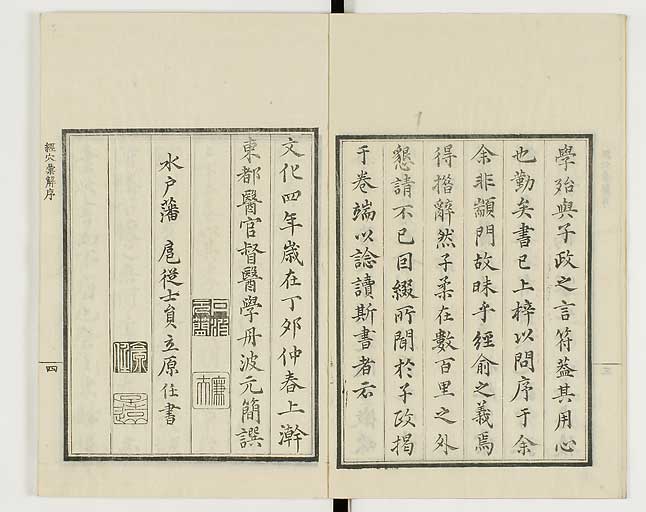 學殆與子政之言符葢其用心
也勤矣書已上梓以問序于余
余非顓門故昧乎經俞之義焉
得搘辭然子柔在數百里之外
懇請不已回綴所聞於子政揭
于卷端以諗讀斯書者云
文化四年歲在丁夘仲春上澣
東都醫官督醫學丹波元簡譔
水戶藩 扈從士員立原任書
經穴彙解序
四